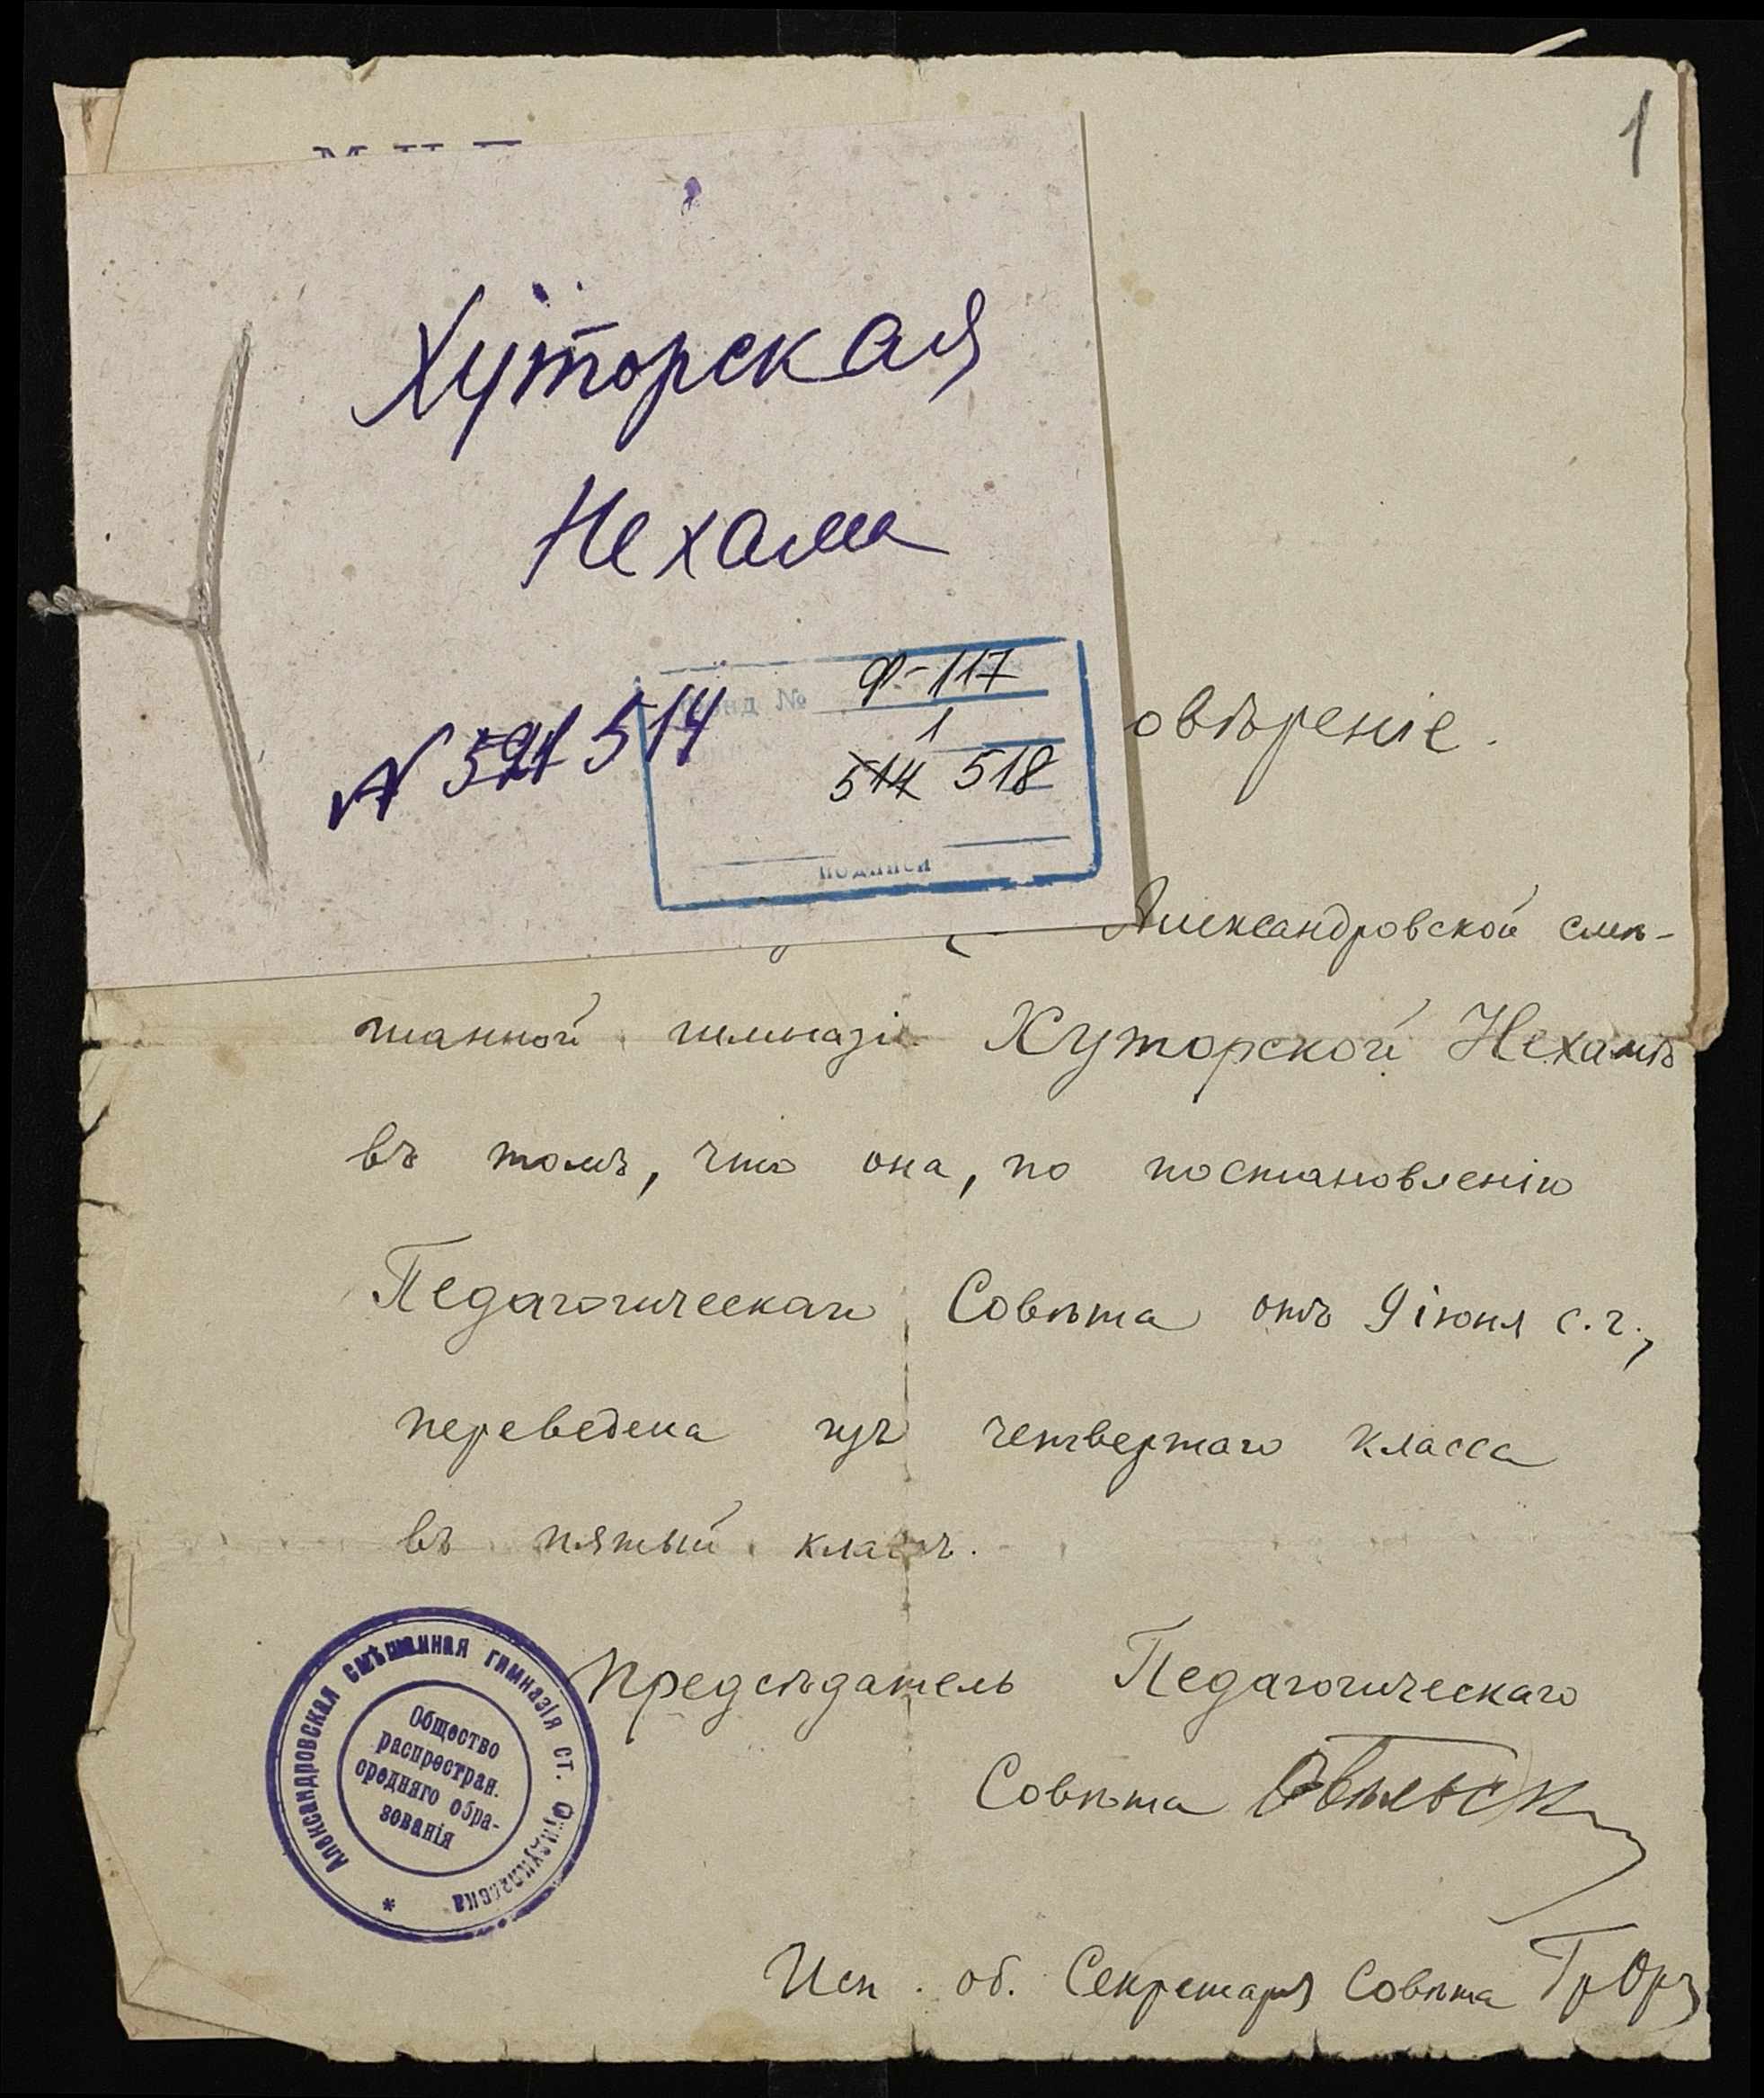 1
Хуторская
Нехама
N 521 514
Фонд № Ф-117
1
514 518
подписи
овѣреніе.
Александровской смѣ-
шанной гимназіи Хуторской Нехамѣ
въ томъ, что она, по постановленію
Педагогическаго Совѣта отъ 9 іюня с.г.,
переведена изъ четвертаго класса
въ пятый классъ.
Предсѣдатель Педагогическаго
Совѣта
Исп. об. Секретаря Совѣта
Александровская смѣшанная гимназія ст.
Общество
распростран.
средняго обра-
зованія